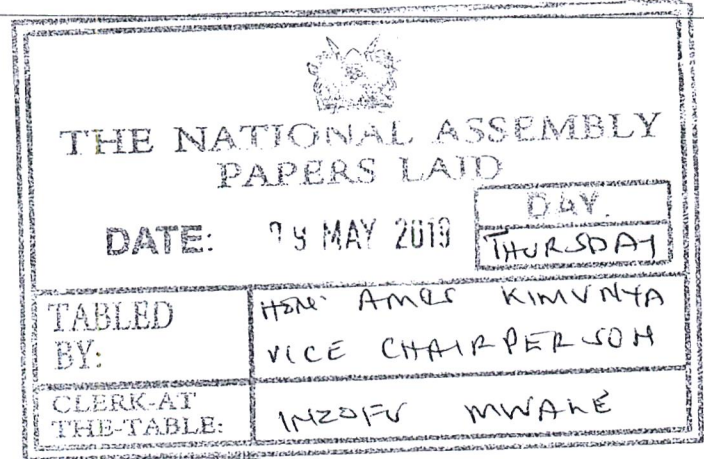 THE NATIONAL ASSEMBLY
PAPERS LAID
DATE: MAY 2019
DAY.
THURSDAY
TABLED BY:
HON. AMOS KIMUNYA
VICE CHAIRPERSON
CLERK-AT THE-TABLE:
INZOFU MWALE